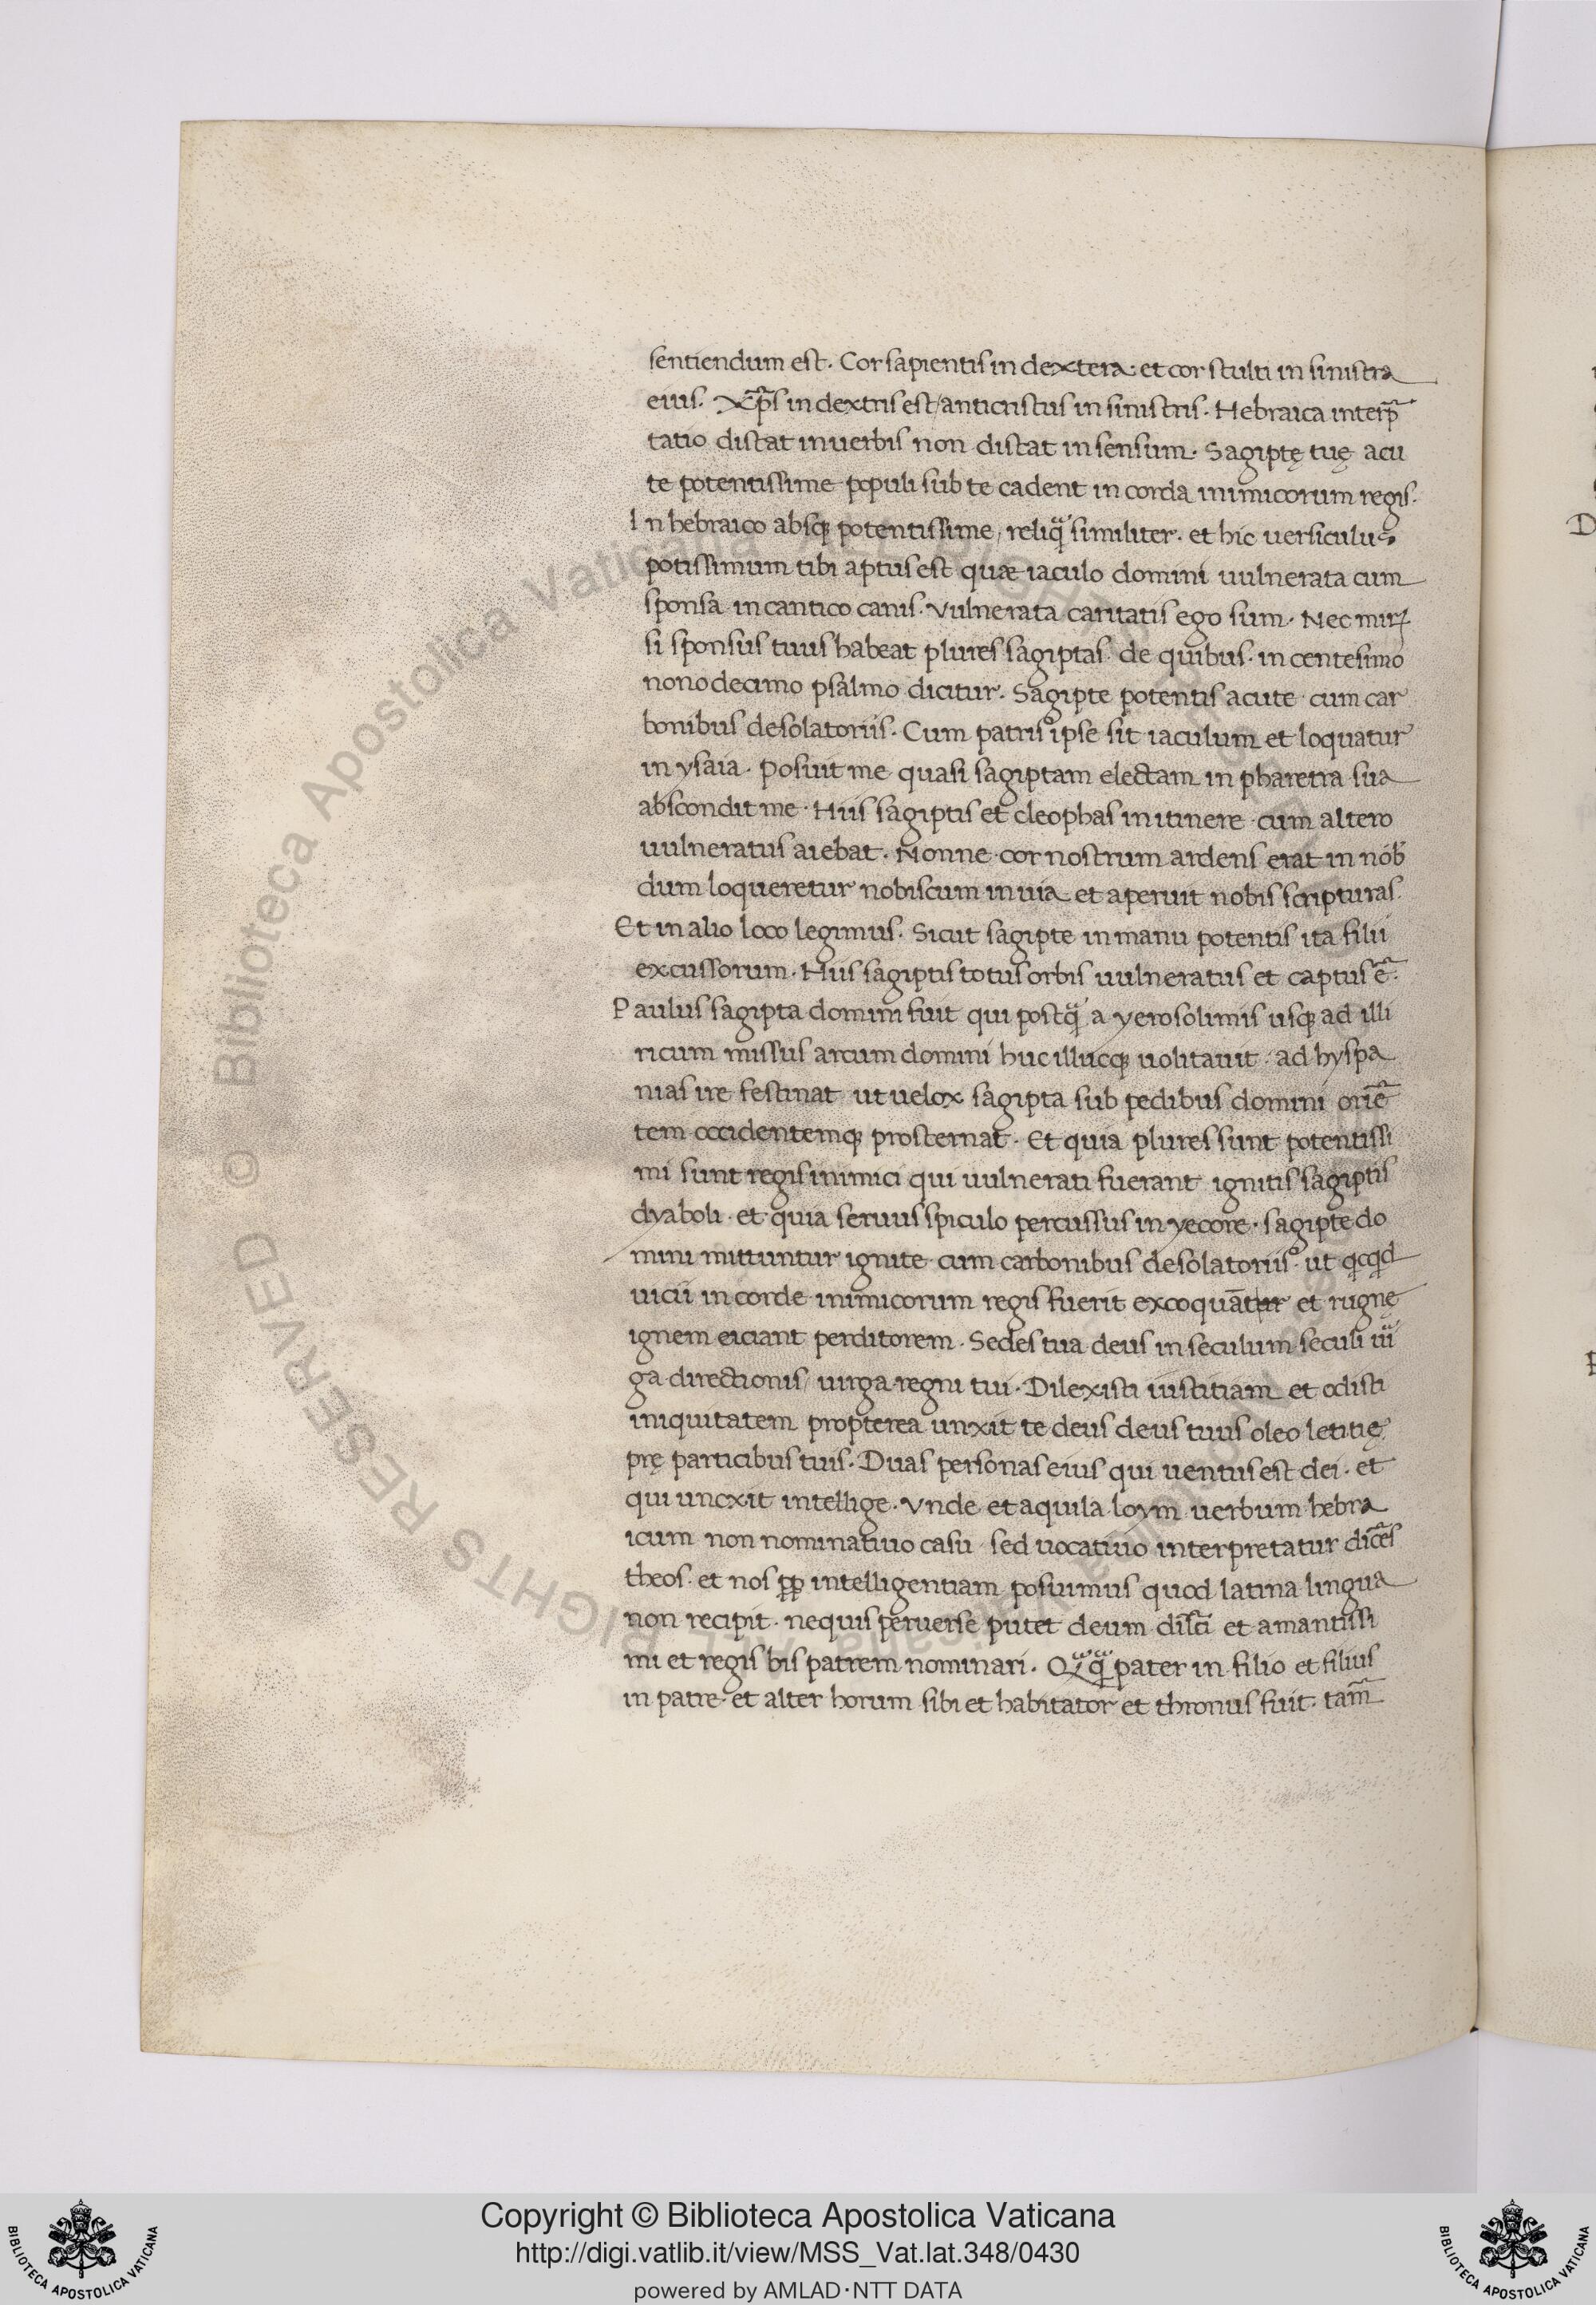 sentiendum est. Cor sapientis in dextera. et cor stulti in sinistra
eius. Xp̄s in dextris est / anticristus in sinistris. Hebraica interp̄
tatio distat in uerbis non distat in sensum. Sagiptę tuę acu
te potentissime populi sub te cadent in corda inimicorum regis.
In hebraico absq; potentissime, reliqᵃ similiter. et hic uersiculus
potissimum tibi aptus est quæ iaculo domini uulnerata cum
sponsa in cantico canis. Vulnerata caritatis ego sum. Nec miꝝ
si sponsus tuus habeat plures sagiptas de quibus. in centesimo
nonodecimo psalmo dicitur. Sagipte potentis acute cum car
bonibus desolatoriis. Cum patris ipse sit iaculum et loquatur
in ysaia. Posuit me quasi sagiptam electam in pharetra sua
abscondit me. Hiis sagiptis et cleophas in itinere cum altero
uulneratus aiebat. Nonne cor nostrum ardens erat in nob̄
dum loqueretur nobiscum in uia et aperuit nobis scripturas.
Et in alio loco legimus. Sicut sagipte in manu potentis ita filii
excussorum. Hiis sagiptis totus orbis uulneratus et captus ē.
Paulus sagipta domini fuit qui postqᵃ a yerosolimis usq; ad illi
ricum missus arcum domini huc illucq; uolitauit. ad hyspa
nias ire festinat ut uelox sagipta sub pedibus domini oriē
tem occidentemq; prosternat. Et quia plures sunt potentissi
mi sunt regis inimici qui uulnerati fuerant ignitis sagiptis
dyaboli. et quia seruus spiculo percussus in yecore. sagipte do
mini mittuntur ignite cum carbonibus desolatoriis. ut qcqd
uicii in corde inimicorum regis fuerit excoquāt et rugnę
ignem eiciant perditorem. Sedes tua deus in seculum seculi uiͥ
ga directionis / uirga regni tui. Dilexisti iustitiam et odisti
iniquitatem propterea unxit te deus deus tuus oleo letitię
prę particibus tuis. Duas personas eius qui uentus est dei. et
qui uncxit intellige. Vnde et aquila loym uerbum hebra
icum non nominatiuo casu sed uocatiuo interpretatur dicēs
theos. et nos ꝓp intelligentiam posuimus quod latina lingua
non recipit. nequis peruerse putet deum dilc̄ti et amantissi
mi et regis bis patrem nominari. Qᵃqᵃ pater in filio et filius
in patre. et alter horum sibi et habitator et thronus fuit. tam̄
© Biblioteca Apostolica Vaticana ALL RIGHTS RESERVED
Copyright © Biblioteca Apostolica Vaticana
http://digi.vatlib.it/view/MSS_Vat.lat.348/0430
powered by AMLAD·NTT DATA
BIBLIOTECA APOSTOLICA VATICANA
BIBLIOTECA APOSTOLICA VATICANA